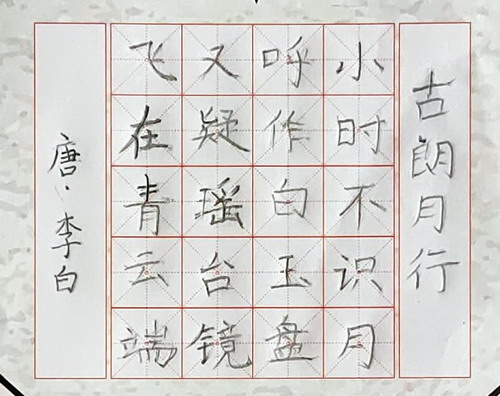 古朗月行
小时不识月
呼作白玉盘
又疑瑶台镜
飞在青云端
唐·李白